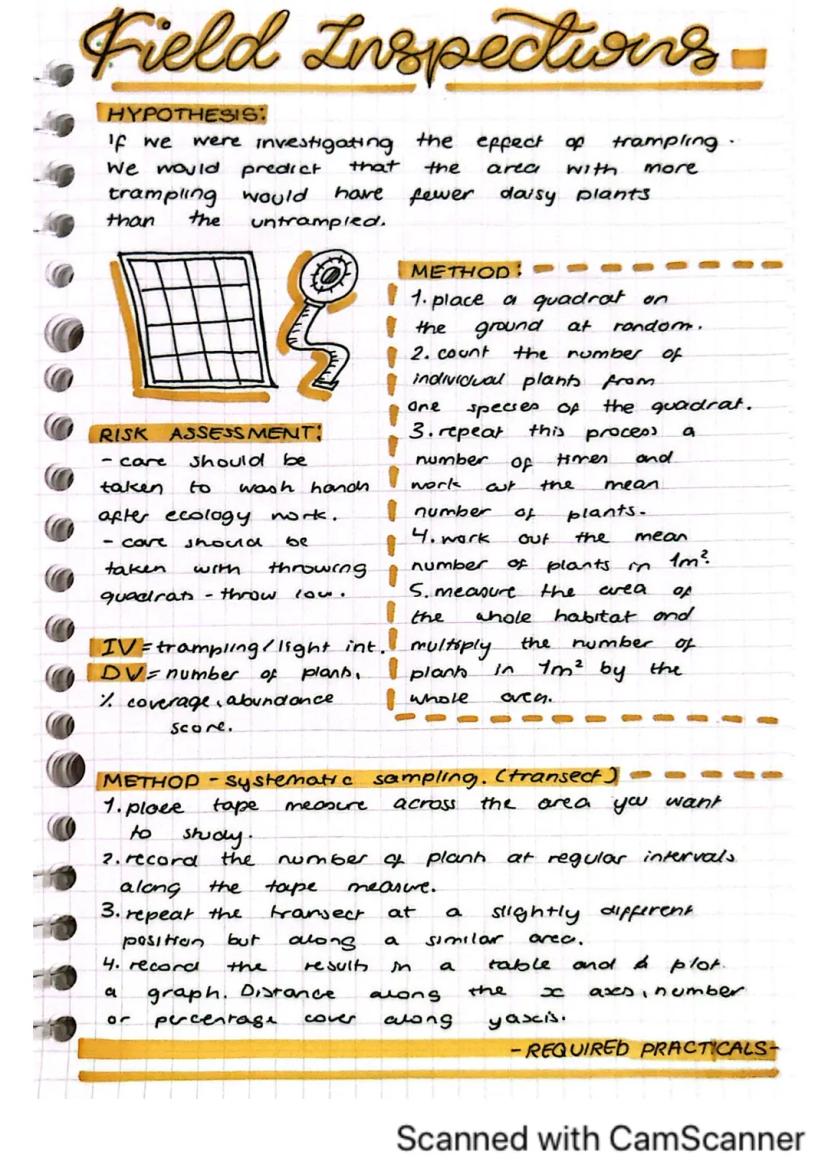 Field Inspections
HYPOTHESIS:
If we were investigating the effect of trampling.
We would predict that the area with more
trampling would have fewer daisy plants
than the untrampled.
METHOD:
1. place a quadrat on
the ground at random.
2. count the number of
individual plants from
one species of the quadrat.
3. repeat this process a
number of times and
work out the mean
number of plants.
4. work out the mean
number of plants in 1m².
5. measure the area of
the whole habitat and
multiply the number of
plants in 1m² by the
whole area.
RISK ASSESSMENT:
- care should be
taken to wash hands
after ecology work.
- care should be
taken with throwing
quadrats - throw low.
IV = trampling/light int.
DV = number of plants,
% coverage, abundance
score.
METHOD - systematic sampling. (transect)
1. place tape measure across the area you want
to study.
2. record the number of plants at regular intervals
along the tape measure.
3. repeat the transect at a slightly different
position but along a similar area.
4. record the results in a table and plot
a graph. Distance along the x axes, number
or percentage cover along y axis.
- REQUIRED PRACTICALS -
Scanned with CamScanner